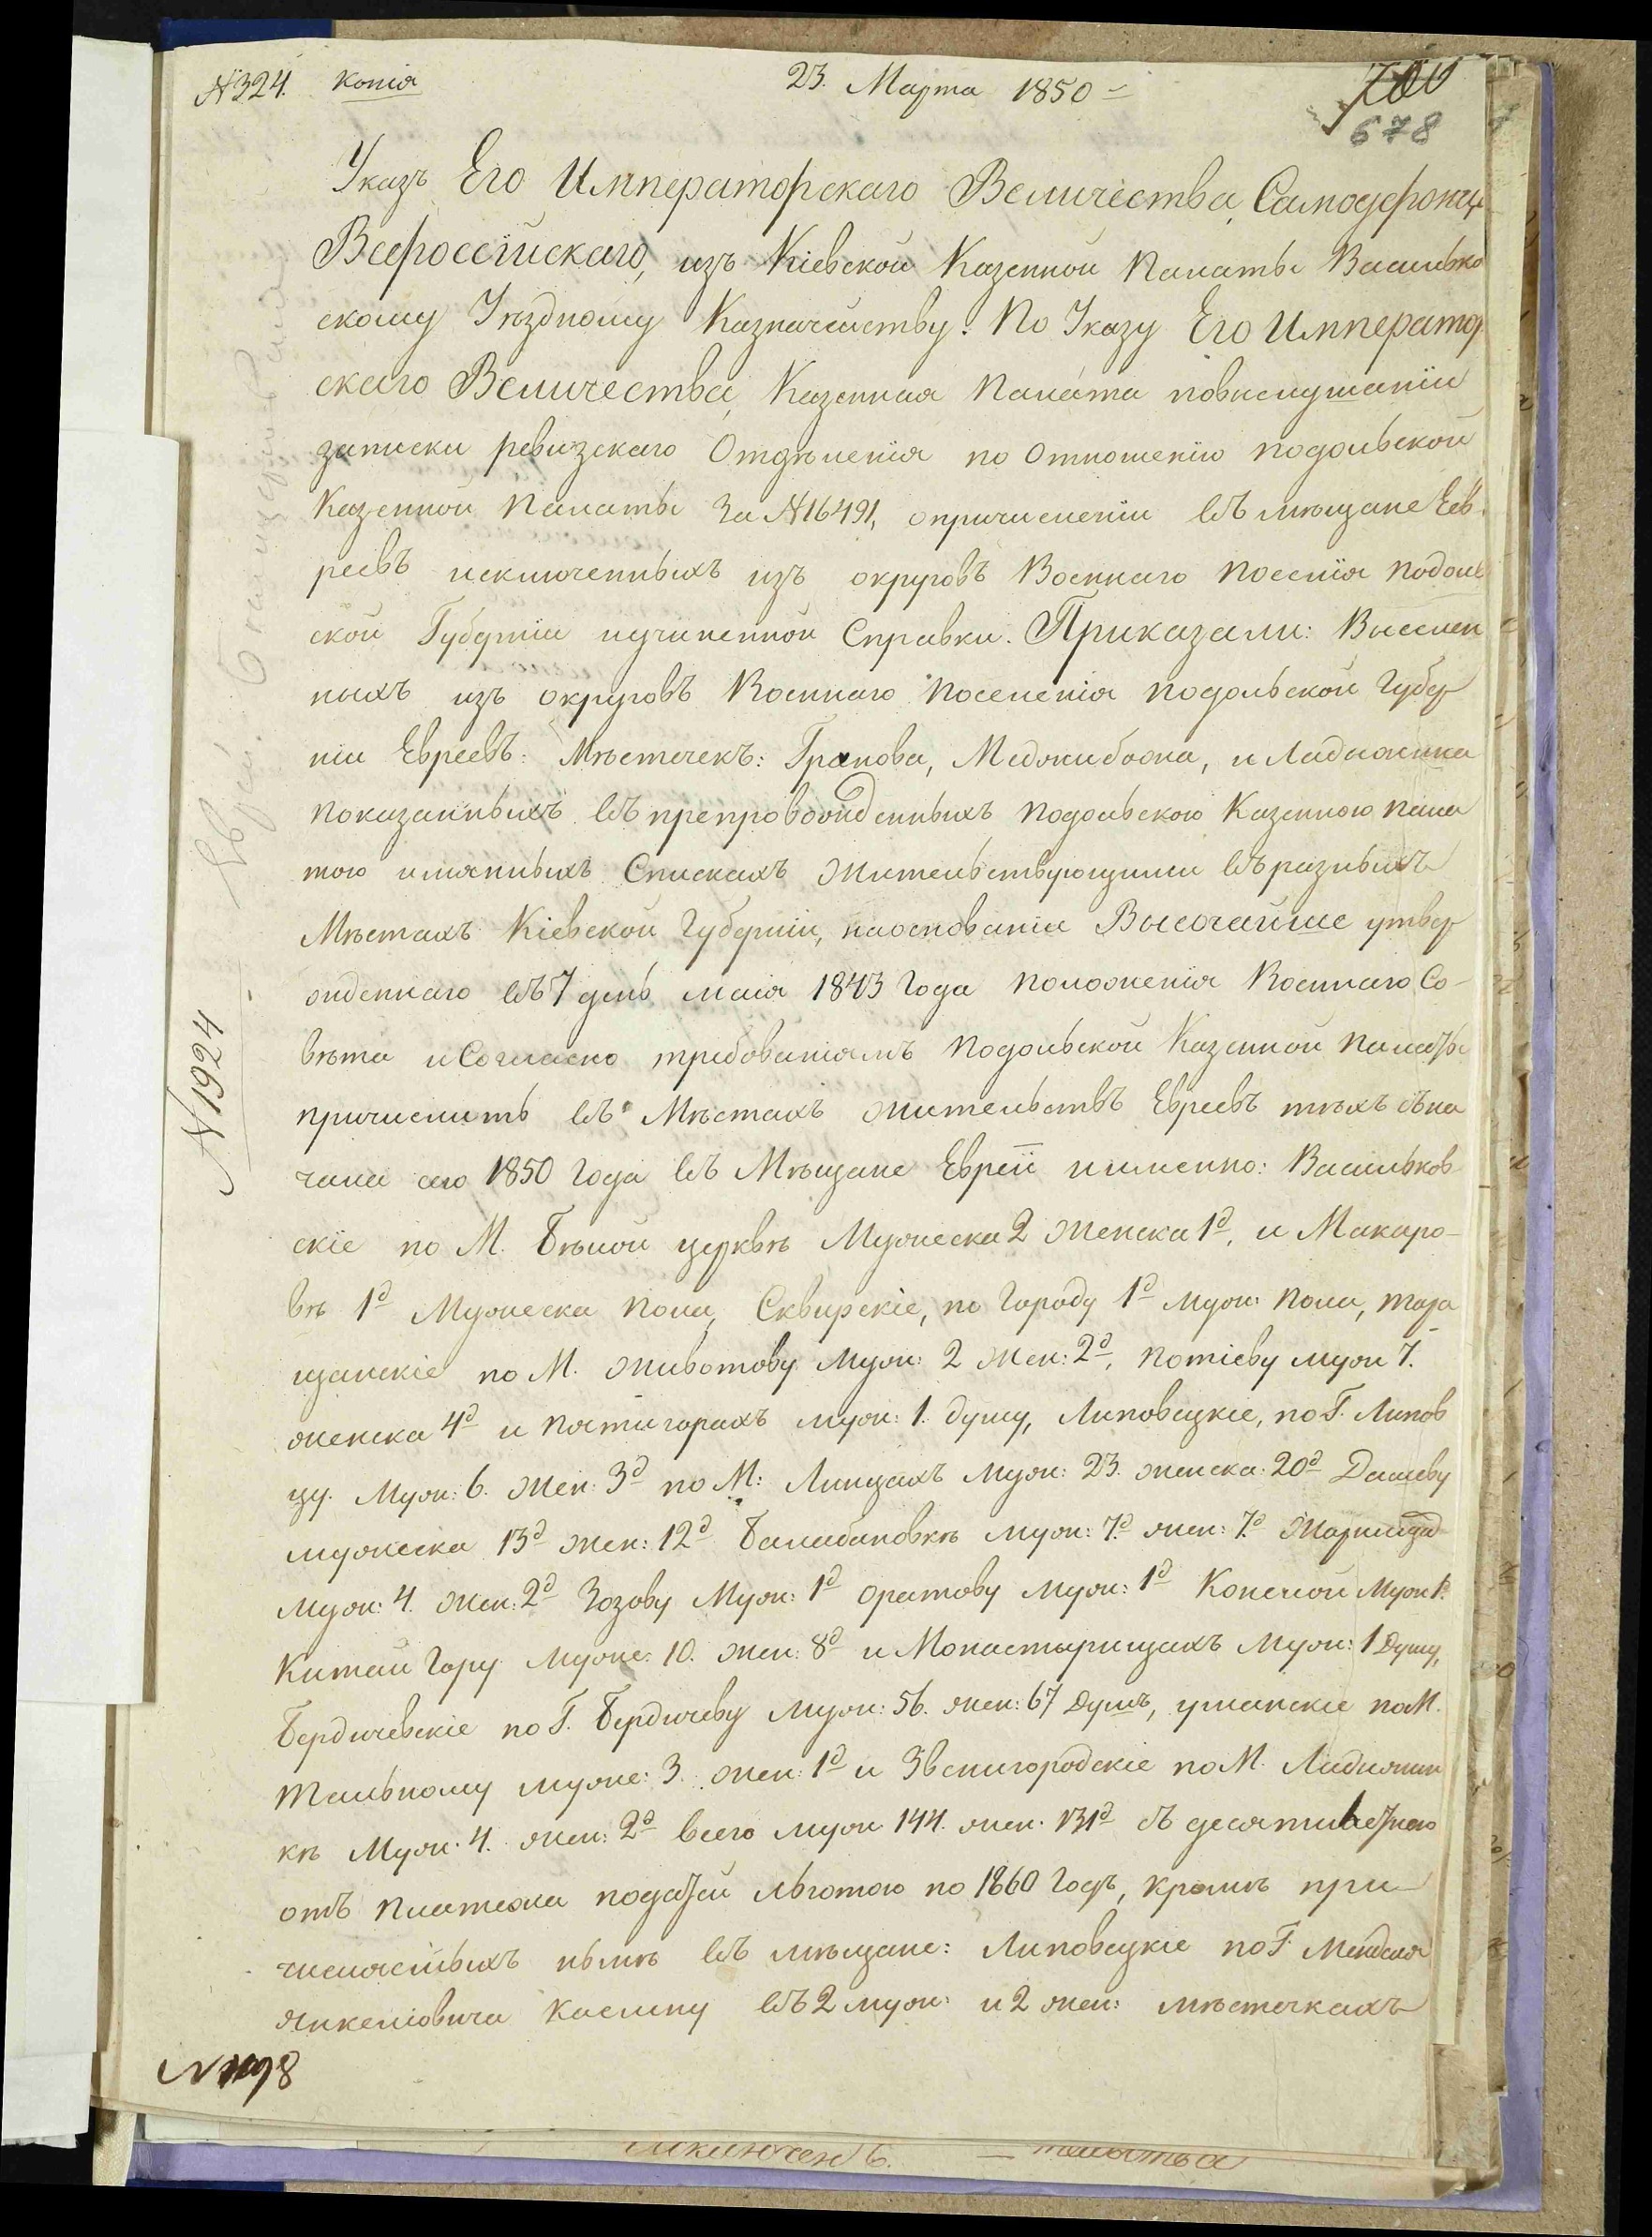 №324. Копія 23. Марта 1850 –
700
678
Указъ Его Императорскаго Величества, Самодержца
Всероссійскаго, изъ Кіевской Казенной Палаты Василько
скому Уѣздному Казначейству. По Указу Его Император
скаго Величества, Казенная Палата повыслушаніи
записки ревизскаго Отдѣленія по Отношенію подольской
Казенной Палаты За №16491, опричисленіи въ мѣщане Ев
реевъ исключенныхъ изъ округовъ Военнаго посенія Подоль
ской Губерніи иучиненной Справки. Приказали: Выселен
ныхъ изъ округовъ Военнаго поселенія подольской Губер
ніи Евреевъ: Мѣстечекъ: Гранова, Меджибожа, и Ладижина
показанныхъ въ препровожденныхъ Подольскою Казенною пала
тою имянныхъ Спискахъ Жительствующими въ разныхъ
Мѣстахъ Кіевской Губерніи, наоснованіи Высочайше утвер
жденнаго въ 7 день маія 1843 Года положенія Военнаго Со-
вѣта и Согласно требованіямъ Подольской Казенной Палаты
причислить въ Мѣстахъ жительствъ Евреевъ тѣхъ съна
чала сего 1850 Года въ Мѣщане Евреи иименно: Васильков
скіе по М. Бѣлой церквѣ Мужеска 2 женска 1д, и Макаро-
вѣ 1д Мужеска пола, Сквирскіе, по Городу 1д муж: пола, Тара
щанскіе по М. Животову Муж: 2 Жен: 2д, Потіеву муж 7.
женска 4д и Пятигорахъ муж: 1. душу, Липовецкіе, по Г. Липов
цу. Муж: 6. Жен: 3д по М: Линцахъ Муж: 23. женска: 20д Дашеву
мужеска 13д жен: 12д Балабановкѣ муж: 7.д жен: 7.д
Муж: 4. Жен: 2д Зозову Муж: 1д оратову Муж: 1д Конелой Муж 1.д
Китай Гору Муже: 10. жен: 8д и Монастырищахъ Муж: 1 Душу,
Бердичевскіе по Г. Бердичеву Муж: 56. жен: 67 Душъ, уманскіе по М.
Тальному муже: 3. жен: 1д и Звенигородскіе по М. Лидижин
кѣ Муж: 4. жен: 2д всего муж 144. жен. 131д съ десятилетнею
отъ платежа податей льготою по 1860 Годъ, кромѣ при-
численныхъ въ мѣщане: Липовецкіе по Г. Менделя
Янкеліовича въ 2 муж: и 2 жен: мѣстечкахъ
№1924